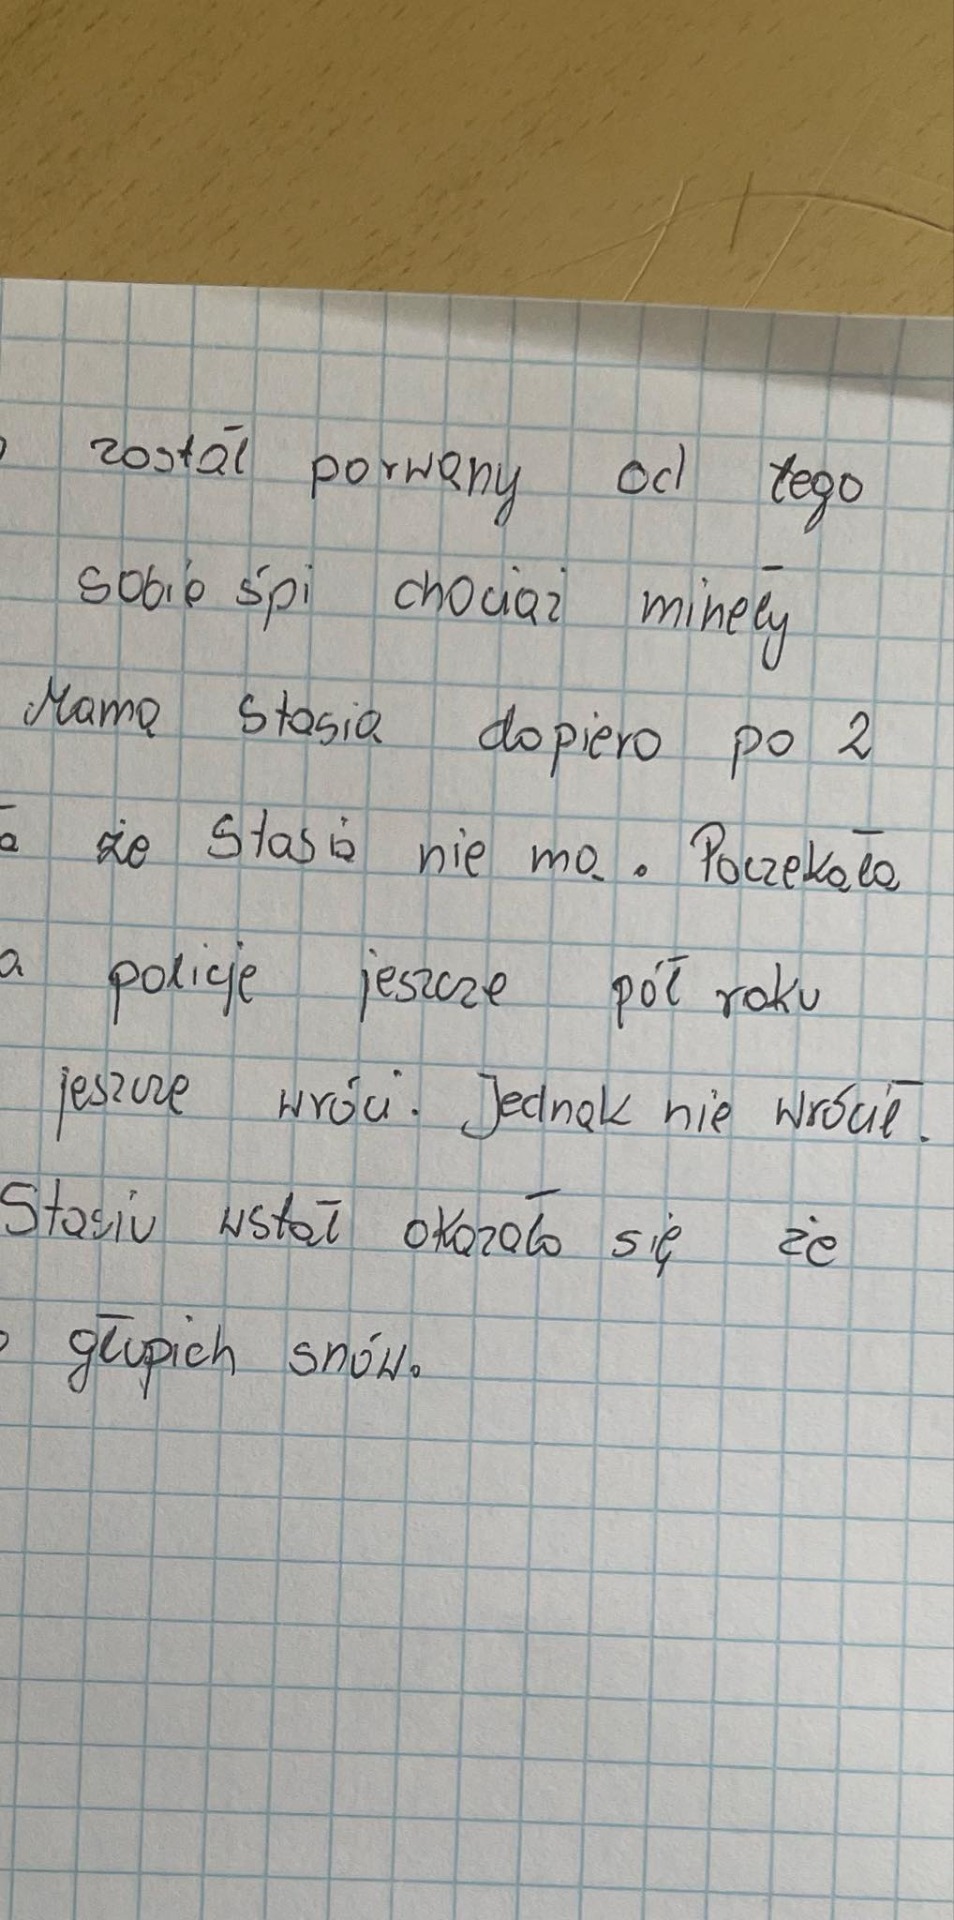 został porwany od tego
sobie śpi chociaż mineły
Mama Stasia dopiero po 2
że Stasia nie ma. Poczekała
policje jeszcze pół roku
jeszcze wróci. Jednak nie wrócił.
Stasiu wstał okazało się że
głupich snów.